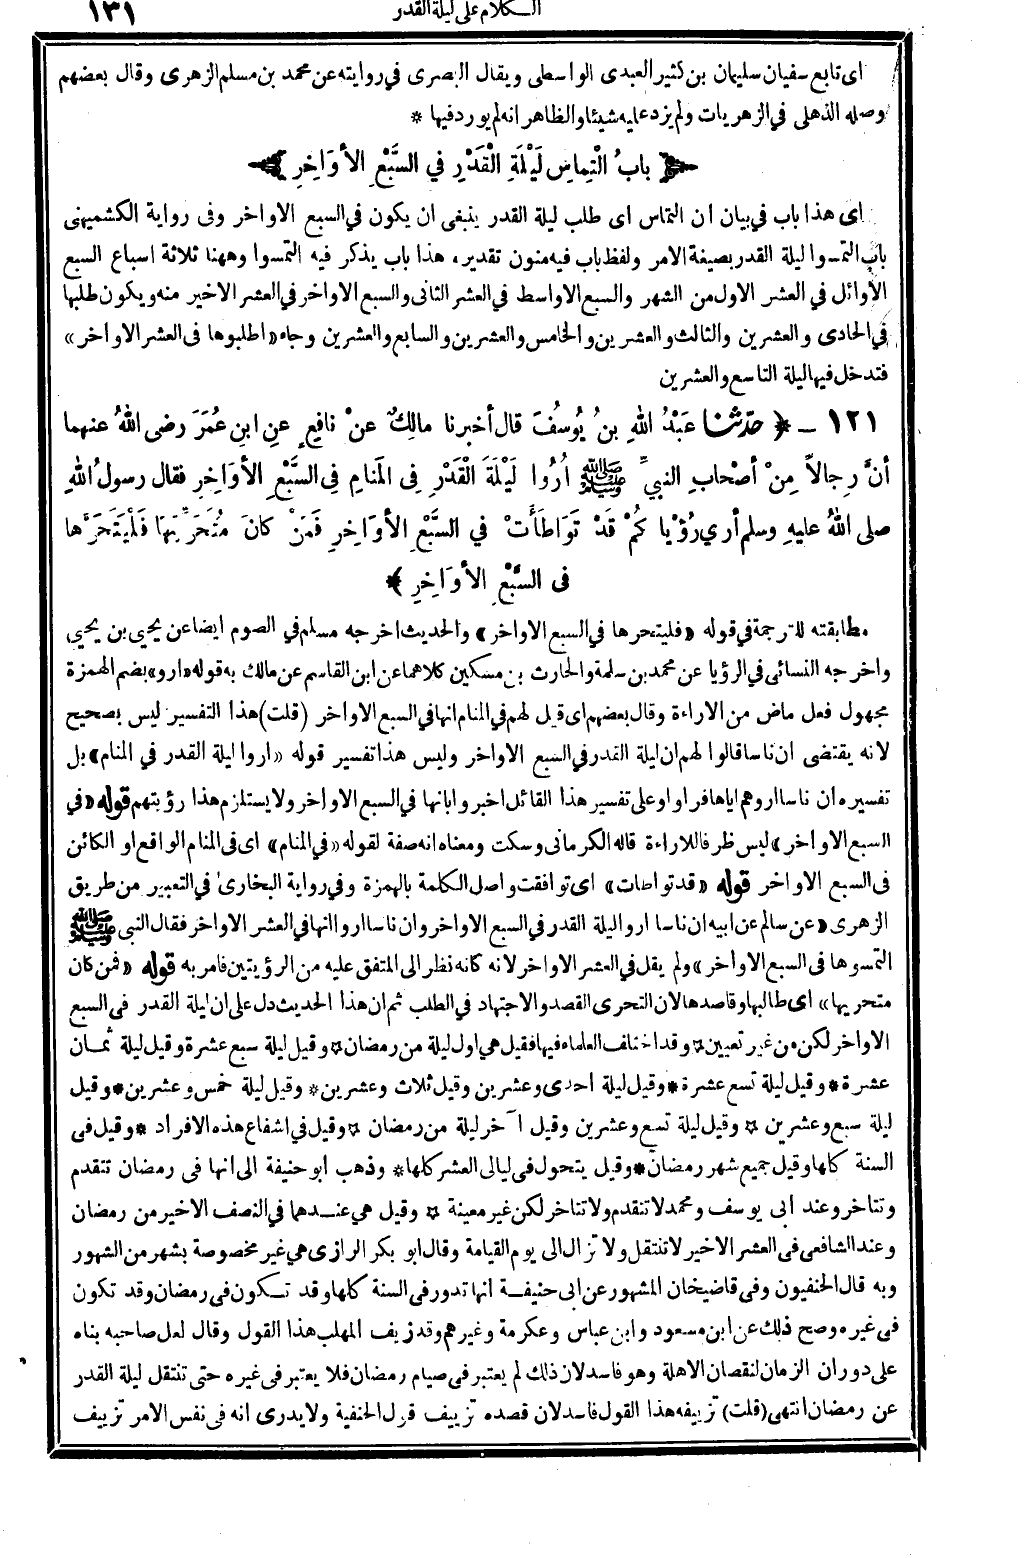 الكلام على ليلة القدر
١٣١
اى تابع سفيان سليمان بن كثير العبدى الواسطى ويقال البصرى في روايته عن محمد بن مسلم الزهرى وقال بعضهم
وصله الذهلى في الزهريات ولم يزد عليه شيئا والظاهر انه لم يورد فيها *
﴿ بابُ الْتِماسِ لَيْلَةِ الْقَدْرِ في السَّبْعِ الأوَاخِرِ ﴾
اى هذا باب في بيان ان التماس اى طلب ليلة القدر ينبغى ان يكون في السبع الاواخر وفى رواية الكشميهنى
باب التمسوا ليلة القدر بصيغة الامر ولفظ باب فيه منون تقديره هذا باب يذكر فيه التمسوا وههنا ثلاثة اسباع السبع
الأوائل في العشر الاول من الشهر والسبع الاواسط في العشر الثانى والسبع الاواخر في العشر الاخير منه ويكون طلبها
في الحادى والعشرين والثالث والعشرين والخامس والعشرين والسابع والعشرين وجاء «اطلبوها فى العشر الاواخر»
فتدخل فيها ليلة التاسع والعشرين
١٢١ - ﴿ حَدَّثَنَا عَبْدُ اللهِ بنُ يُوسُفَ قال أخبرنا مالِكٌ عنْ نافِعٍ عنِ ابنِ عُمَرَ رضى اللهُ عنهما
أنَّ رِجالاً مِنْ أصْحابِ النبيِّ ﷺ اُرُوا لَيْلَةَ الْقَدْرِ فى المَنامِ فى السَّبْعِ الأوَاخِرِ فقال رسولُ اللهِ
صلى اللهُ عليهِ وسلم أري رُؤْيا كُمْ قَدْ تَوَاطَأَتْ في السَّبْعِ الأوَاخِرِ فَمَنْ كانَ مُتَحَرِّيَهَا فَلْيَتَحَرَّها
فى السَّبْعِ الأوَاخِرِ ﴾
مطابقته للترجمة في قوله «فليتحرها في السبع الاواخر» والحديث اخرجه مسلم في الصوم ايضا عن يحيى بن يحيى
واخرجه النسائى في الرؤيا عن محمد بن سلمة والحارث بن مسكين كلاهما عن ابن القاسم عن مالك به قوله «اروا» بضم الهمزة
مجهول فعل ماض من الاراءة وقال بعضهم اى قيل لهم في المنام انها في السبع الاواخر (قلت) هذا التفسير ليس بصحيح
لانه يقتضى ان ناسا قالوا لهم ان ليلة القدر في السبع الاواخر وليس هذا تفسير قوله «اروا ليلة القدر في المنام» بل
تفسيره ان ناسا اروهم اياها فراوا وعلى تفسير هذا القائل اخبروا بانها في السبع الاواخر ولا يستلزم هذا رؤيتهم قوله «في
السبع الاواخر» ليس ظرفا للاراءة قاله الكرمانى وسكت ومعناه انه صفة لقوله «في المنام» اى في المنام الواقع او الكائن
فى السبع الاواخر قوله «قد تواطات» اى توافقت واصل الكلمة بالهمزة وفي رواية البخارى في التعبير من طريق
الزهرى «عن سالم عن ابيه ان ناسا اروا ليلة القدر في السبع الاواخر وان ناسا اروا انها في العشر الاواخر فقال النبى ﷺ
التمسوها فى السبع الاواخر» ولم يقل في العشر الاواخر لانه كانه نظر الى المتفق عليه من الرؤيتين فامر به قوله «فمن كان
متحريها» اى طالبها وقاصدها لان التحرى القصد والاجتهاد في الطلب ثم ان هذا الحديث دل على ان ليلة القدر فى السبع
الاواخر لكن من غير تعيين * وقد اختلف العلماء فيها فقيل هي اول ليلة من رمضان * وقيل ليلة سبع عشرة وقيل ليلة ثمان
عشرة * وقيل ليلة تسع عشرة * وقيل ليلة احدى وعشرين وقيل ثلاث وعشرين * وقيل ليلة خمس وعشرين * وقيل
ليلة سبع وعشرين * وقيل ليلة تسع وعشرين وقيل آخر ليلة من رمضان * وقيل في اشفاع هذه الافراد * وقيل فى
السنة كلها وقيل جميع شهر رمضان * وقيل يتحول فى ليالى العشر كلها * وذهب ابو حنيفة الى انها فى رمضان تتقدم
وتتاخر وعند ابى يوسف ومحمد لا تتقدم ولا تتاخر لكن غير معينة * وقيل هي عندهما في النصف الاخير من رمضان
وعند الشافعى فى العشر الاخير لا تنتقل ولا تزال الى يوم القيامة وقال ابو بكر الرازى هي غير مخصوصة بشهر من الشهور
وبه قال الحنفيون وفى قاضيخان المشهور عن ابى حنيفة انها تدور فى السنة كلها وقد تكون فى رمضان وقد تكون
فى غيره وصح ذلك عن ابن مسعود وابن عباس وعكرمة وغيرهم وقد زيف المهلب هذا القول وقال لعل صاحبه بناه
على دوران الزمان لنقصان الاهلة وهو فاسد لان ذلك لم يعتبر فى صيام رمضان فلا يعتبر فى غيره حتى تنتقل ليلة القدر
عن رمضان انتهى (قلت) تزييفه هذا القول فاسد لان قصده تزييف قول الحنفية ولا يدرى انه فى نفس الامر تزييف